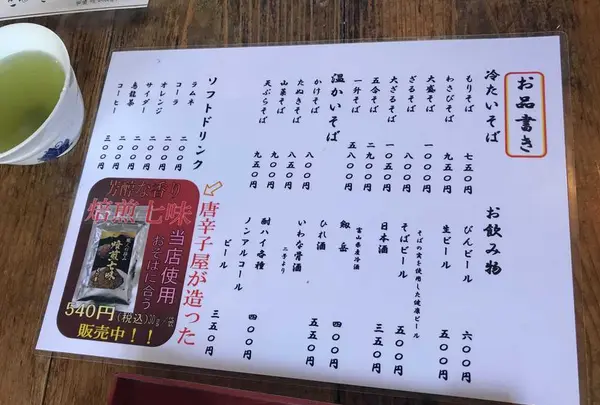 お品書き
冷たいそば
もりそば 七五〇円
わさびそば 九五〇円
大盛そば 一〇〇〇円
ざるそば 八〇〇円
大ざるそば 一〇五〇円
五合そば 二九〇〇円
一升そば 五八〇〇円
温かいそば
かけそば 八〇〇円
たぬきそば 八五〇円
山菜そば 九五〇円
天ぷらそば 九五〇円
ソフトドリンク
ラムネ 二〇〇円
コーラ 二〇〇円
オレンジ 二〇〇円
サイダー 二〇〇円
烏龍茶 二〇〇円
コーヒー 三〇〇円
お飲み物
びんビール 六〇〇円
生ビール 五五〇円
そばの実を使用した健康ビール
そばビール 五〇〇円
日本酒 三五〇円
富山県産冷酒
剱岳 四〇〇円
ひれ酒 五五〇円
いわな骨酒 二号より
酎ハイ各種 四〇〇円
ノンアルコールビール 三五〇円
唐辛子屋が造った
芳醇な香り
焙煎七味
当店使用
おそばに合う
焙煎七味
540円(税込)20g/袋
販売中!!